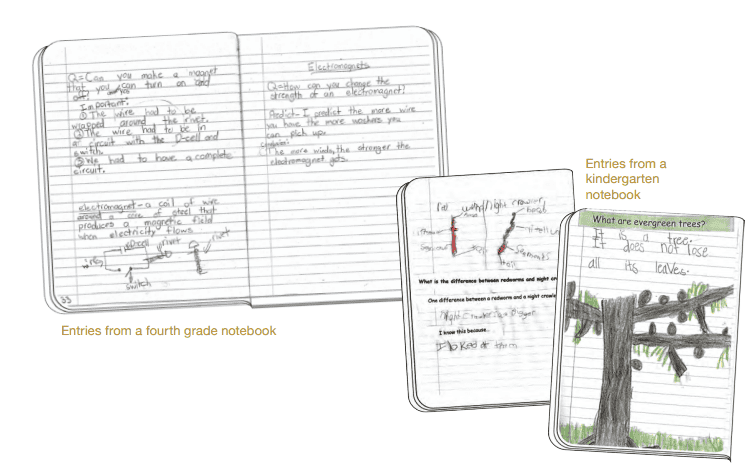 Q=Can you make a magnet
that you can turn on and
off? yes
Important.
① The wire had to be
wrapped around the rivet.
② The wire had to be in
a circuit with the D-cell and
switch.
③ We had to have a complete
circuit.
electromagnet - a coil of wire
around a core of steel that
produces a magnetic field
when electricity flows
rivet
rivet
switch
33
Electromagnets
Q=How can you change the
strength of an electromagnet?
Predict- I predict the more wire
you have the more washers you
can pick up.
The more winds, the stronger the
electromagnet gets.
Entries from a fourth grade notebook
Red worm/Night crawler
head
Segments
tail
What is the difference between redworms and night cr
One difference between a redworm and a night crawle
Night Crawlers are Bigger
I know this because
I looked at them
Entries from a
kindergarten
notebook
What are evergreen trees?
It is a tree.
It does not lose
all its leaves.